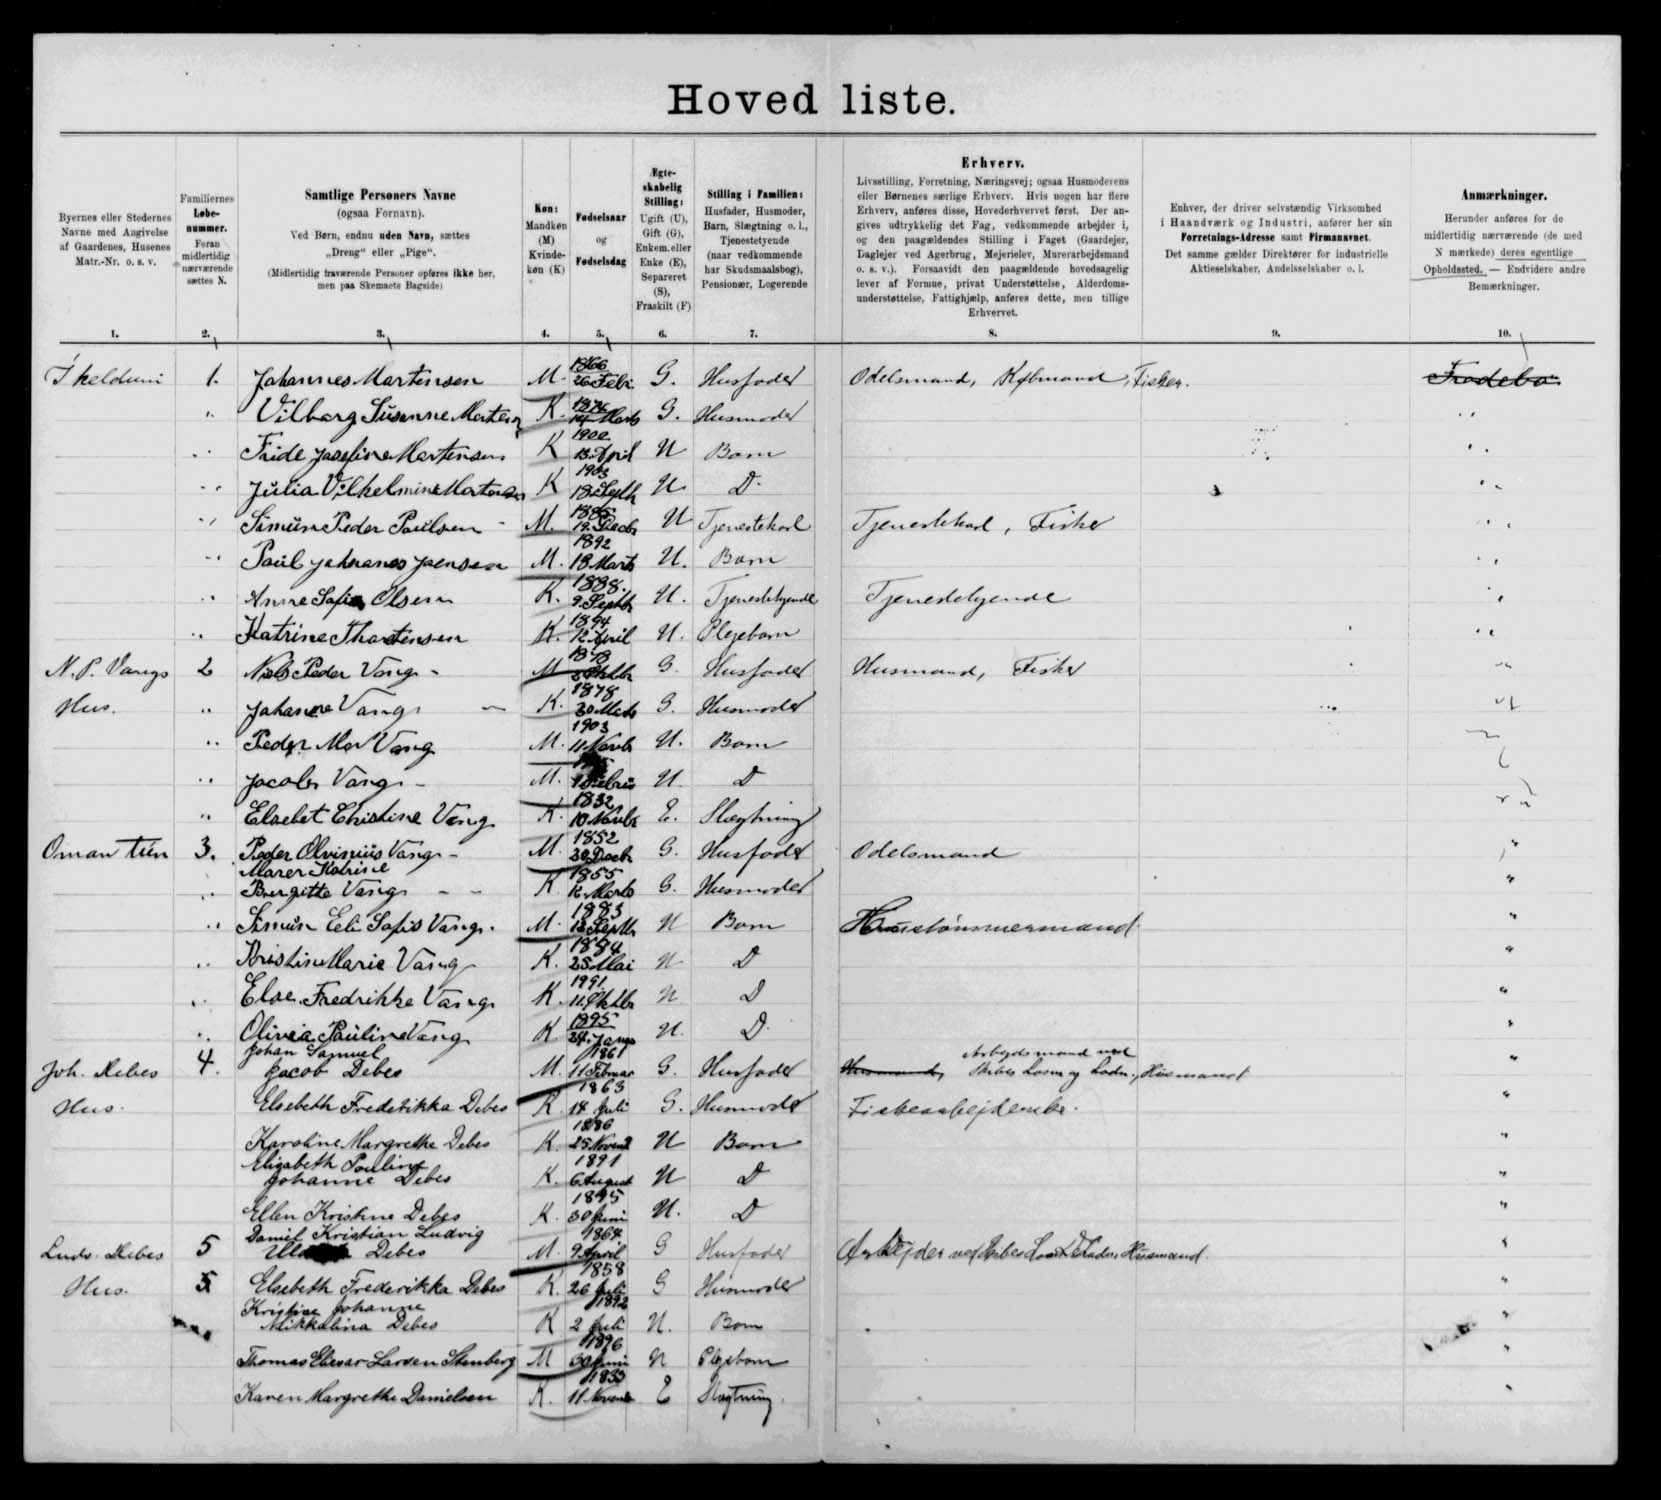 Hoved liste.
Byernes eller Stedernes
Navne med Angivelse
af Gaardenes, Husenes
Matr.-Nr. o. s. v.
Familiernes
Løbe-
nummer.
Foran
midlertidig
nærværende
sættes N.
Samtlige Personers Navne
(ogsaa Fornavn).
Ved Børn, endnu uden Navn, sættes
„Dreng“ eller „Pige“.
(Midlertidig fraværende Personer opføres ikke her,
men paa Skemaets Bagside)
Køn:
Mandkøn
(M)
Kvinde-
køn (K)
Fødselsaar
og
Fødselsdag
Ægte-
skabelig
Stilling:
Ugift (U),
Gift (G),
Enkem. eller
Enke (E),
Separeret
(S),
Fraskilt (F)
Stilling i Familien:
Husfader, Husmoder,
Barn, Slægtning o. l.,
Tjenestetyende
(naar vedkommende
har Skudsmaalsbog),
Pensionær, Logerende
Erhverv.
Livsstilling, Forretning, Næringsvej; ogsaa Husmoderens
eller Børnenes særlige Erhverv. Hvis nogen har flere
Erhverv, anføres disse, Hovederhvervet først. Der an-
gives udtrykkelig det Fag, vedkommende arbejder i,
og den paagældendes Stilling i Faget (Gaardejer,
Daglejer ved Agerbrug, Mejerielev, Murerarbejdsmand
o. s. v.). Forsaavidt den paagældende hovedsagelig
lever af Formue, privat Understøttelse, Alderdoms-
understøttelse, Fattighjælp, anføres dette, men tillige
Erhvervet.
Enhver, der driver selvstændig Virksomhed
i Haandværk og Industri, anfører her sin
Forretnings-Adresse samt Firmanavnet.
Det samme gælder Direktører for industrielle
Aktieselskaber, Andelsselskaber o. l.
Anmærkninger.
Herunder anføres for de
midlertidig nærværende (de med
N mærkede) deres egentlige
Opholdssted. — Endvidere andre
Bemærkninger.
1. 2. 3. 4. 5. 6. 7. 8. 9. 10.
Í kelduni 1. Johannes Martensen M. 1866 26 Febr G. Husfader Odelsmand, Købmand, Fisker.
" Vilborg Susanne Martensen K. 1874 14 Marts G. Husmoder "
" Fride Josefine Martensen K 1902 13 April U Barn "
" Julia Vilhelmine Martensen K 1903 18 Septb U. D. "
" Simün Peder Paulsen M. 1885 19 Decb U Tjenestekarl Tjenestekarl, Fisker "
" Paul Johannes Joensen M. 1892 18 Marts U. Barn "
" Anne Sofie Olsen K. 1888. 9 Septb U. Tjenestetyende Tjenestetyende "
" Katrine Thorstensen K. 1894 12 April U. Plejebarn "
N. P. Vangs 2 Niels Peder Vang M 1878 Oktbr G. Husfader Husmand, Fisker "
Hus. " Johanne Vang K. 1878 30 Marts G. Husmoder
" Peder Vang M. 1903 11 Novb U. Barn
" Jacob Vang M. U D
" Elsebet Christine Vang K. 1832 10 Novb E. Slægtning
Oman tún 3. Peder Olvinius Vang M. 1852 20 Decb G. Husfader Odelsmand "
Maren Katrine
" Birgitte Vang K. 1855 12 Marts G. Husmoder "
" Simün Eli Sofus Vang M. 1883 13 Septb U Barn Hustømmermand "
" Kristine Marie Vang K. 1884 25 Mai U D "
" Else Fredrikke Vang K. 1891 11. Oktb U D "
" Olivia Pauline Vang K. 1895 24. Januar U. D. "
Johan Samuel Arbejdsmand ved
Joh. Debes 4. Jacob Debes M. 1861 11 Februar G. Husfader Husmand, Skibes Losn og Ladn., Husmand "
Hus. Elsebeth Frederikka Debes K. 1863 14 Juli G. Husmoder Fiskearbejderske. "
Karoline Margrethe Debes K. 1886 25 Novemb U Barn "
Elizabeth Pauline
Johanne Debes K. 1891 6 August U D "
Ellen Kristine Debes K. 1895 30 Juni U. D "
Daniel Kristian Ludvig
Ludv. Debes 5 Debes M. 1864 9 April G Husfader Arbejder ved Skibes Losn & Ladn, Husmand. "
Hus. 5 Elsebeth Frederikka Debes K. 1858 26 Juli G Husmoder "
Kristine Johanne
Mikkelina Debes K 1892 2 Juli U. Barn "
Thomas Larsen Stenberg M 1896 30 Juni U Plejebarn "
Karen Margrethe Danielsen K. 1833 11 Novemb E Slægtning. "